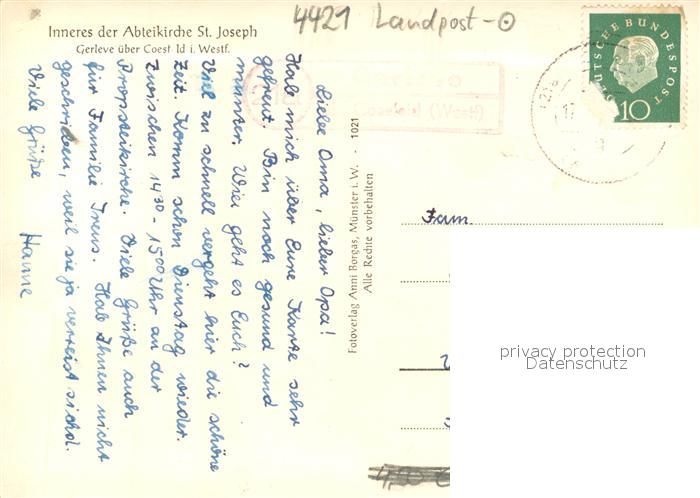 Inneres der Abteikirche St. Joseph
Gerleve über Coesfeld i. Westf.
4421 Landpost-
DEUTSCHE BUNDESPOST
10
(21a)
Coesfeld (Westf)
Liebe Oma, lieber Opa!
Hab mich über Eure Karte sehr
gefreut. Bin noch gesund und
munter. Wie geht es Euch?
Viel zu schnell vergeht hier die schöne
Zeit. Komm schon Dienstag wieder.
Zwischen 14³⁰ - 15⁰⁰ Uhr an der
Propsteikirche. Viele Grüße auch
für Familie Treus. Hab Ihnen nicht
geschrieben, weil sie ja verreist sind.
Viele Grüße Hanne
Fotoverlag Anni Borgas, Münster i. W. - 1021
Alle Rechte vorbehalten
Fam.
privacy protection
Datenschutz